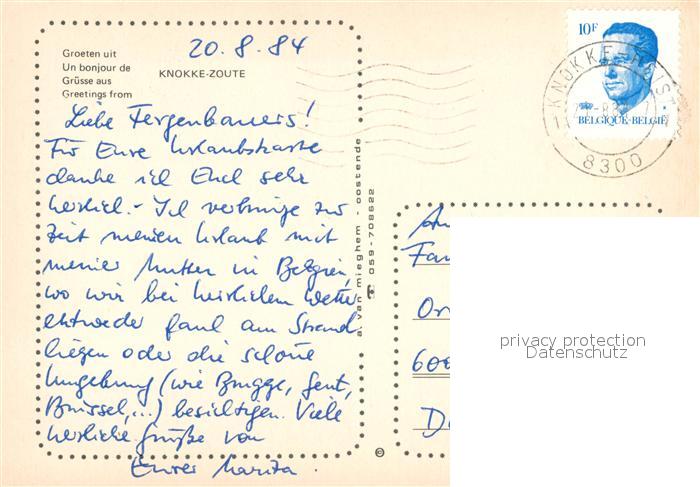 20.8.84
Groeten uit
Un bonjour de
Grüsse aus
Greetings from
KNOKKE-ZOUTE
Liebe Fergenbauers!
Für Eure Urlaubskarte
danke ich Euch sehr
herzlich. - Ich verbringe zur
Zeit meinen Urlaub mit
meiner Mutter in Belgien,
wo wir bei herrlichem Wetter
entweder faul am Strand
liegen oder die schöne
Umgebung (wie Brugge, Gent,
Brüssel,...) besichtigen. Viele
herzliche Grüße von
Eurer Marita.
a. van mieghem - oostende
☎ 059-708622
©
10F
BELGIQUE-BELGIË
KNOKKE-HEIST
8300
An
Fam
Or
600
D
privacy protection
Datenschutz